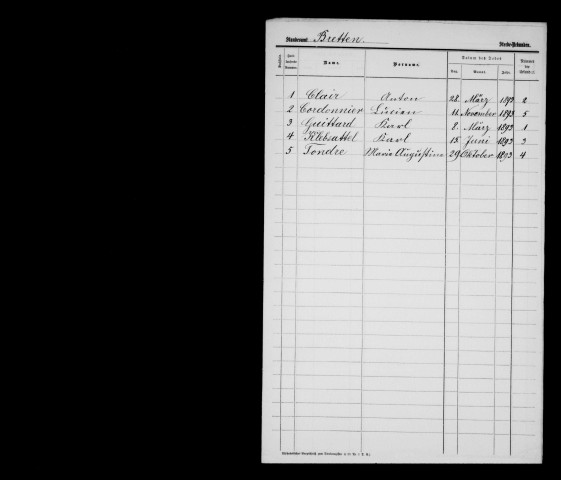 Standesamt Bretten. Sterbe-Urkunden.
Name. Vorname. Datum des Todes Nummer der
Tag. Monat. Jahr.
1 Clair Anton 28. März 1893 2
2 Cordonnier Lucien 11. November 1893 5
3 Guittard Karl 8. März 1893 1
4 Karl 15. Juni 1893 3
5 Tondre Marie Augustine 29 Oktober 1893 4